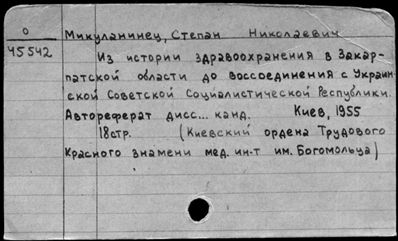 0
45542
Микуланинец, Степан Николаевич
Из истории здравоохранения в Закар-
патской области до воссоединения с Украин-
ской Советской Социалистической Республики.
Автореферат дисс... канд. Киев, 1955
18стр. (Киевский ордена Трудового
Красного знамени мед. ин-т им. Богомольца)